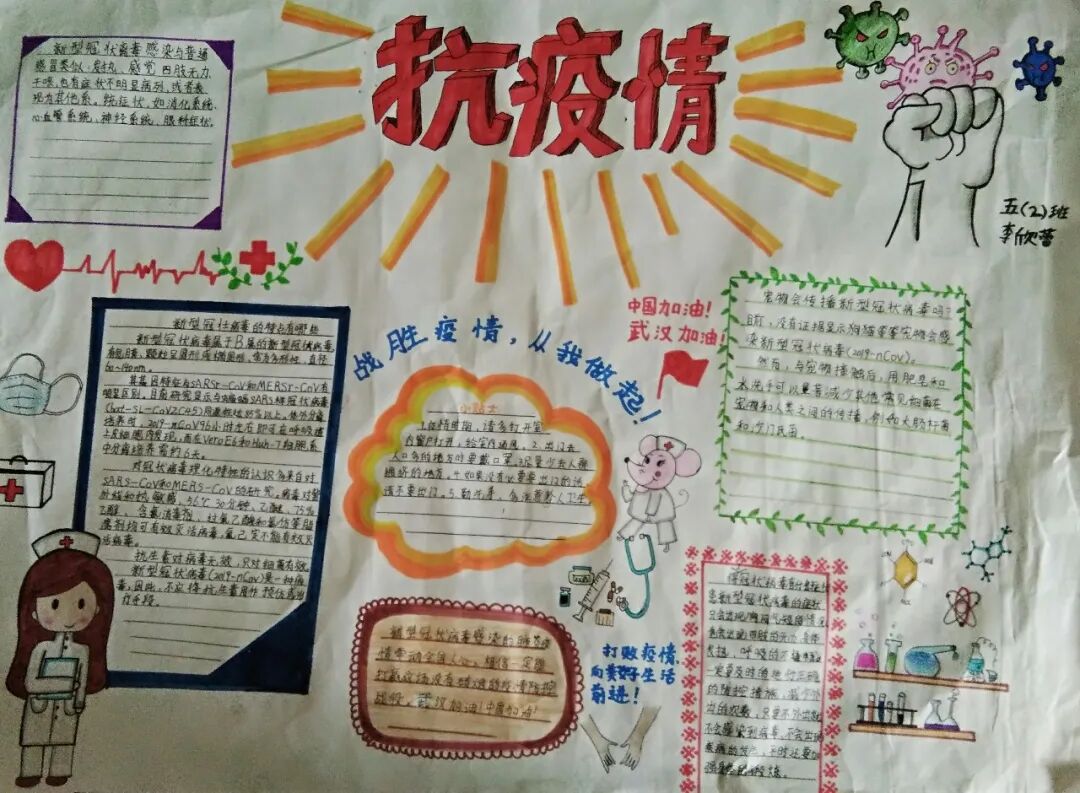 抗疫情
新型冠状病毒感染与普通
感冒类似:发热、感觉四肢无力
干咳,也有症状不明显病列,或者表
现为其他系。统症状,如消化系统、
心血管系统、神经系统、眼科症状。
五(2)班
李欣蕾
中国加油!
武汉加油!
战胜疫情,从我做起!
新型冠状病毒的特点有哪些
新型冠状病毒属于β属的新型冠状病毒,
有包膜,颗粒呈圆形或椭圆形,常为多形性,直径
60~140nm。
其基因特征与SARSr-CoV和MERSr-CoV有
明显区别,目前研究显示与蝙蝠SARS样冠状病毒
(bat-SL-CoVZC45)同源性达85%以上。体外分离
培养时,2019-nCoV96小时左右即可在呼吸道
上皮细胞内发现,而在VeroE6和Huh-7细胞系
中分离培养需约6天。
对冠状病毒理化特性的认识多来自对
SARS-CoV和MERS-CoV的研究。病毒对紫
外线和热敏感,56℃30分钟、乙醚、75%
乙醇、含氯消毒剂、过氧乙酸和氯仿等脂
溶剂均可有效灭活病毒,氯己定不能有效灭
活病毒。
抗生素对病毒无效,只对细菌有效
新型冠状病毒(2019-nCoV)是一种病
毒,因此,不应将抗生素用作预防或治
疗手段。
小贴士
内窗户打开,给室内通风。2.出门去
人口多的地方时要戴口罩。3.尽量少去人群
拥挤的地方。4.如果没有必要要出门的话
请不要出门。5.勤洗手,
宠物会传播新型冠状病毒吗?
目前,没有证据显示狗猫等宠物会感
染新型冠状病毒(2019-nCov)。
然而,与宠物接触后,用肥皂和
水洗手可以显著减少其他常见细菌在
宠物和人类之间的传播,例如大肠杆菌
和沙门氏菌。
新型冠状病毒感染的肺炎疫
情牵动全国人心,相信一定能
打赢这场没有硝烟的疫情防控
战役,武汉加油!中国加油!
打败疫情,
向美好生活
前进!
患新型冠状病毒的症状
一定要及时的进行正确
的防控措施,减少外
出的次数,只要不外出就
不会感染到病毒,不会出现
疾病的发生,平时还要加
强身体的锻炼。